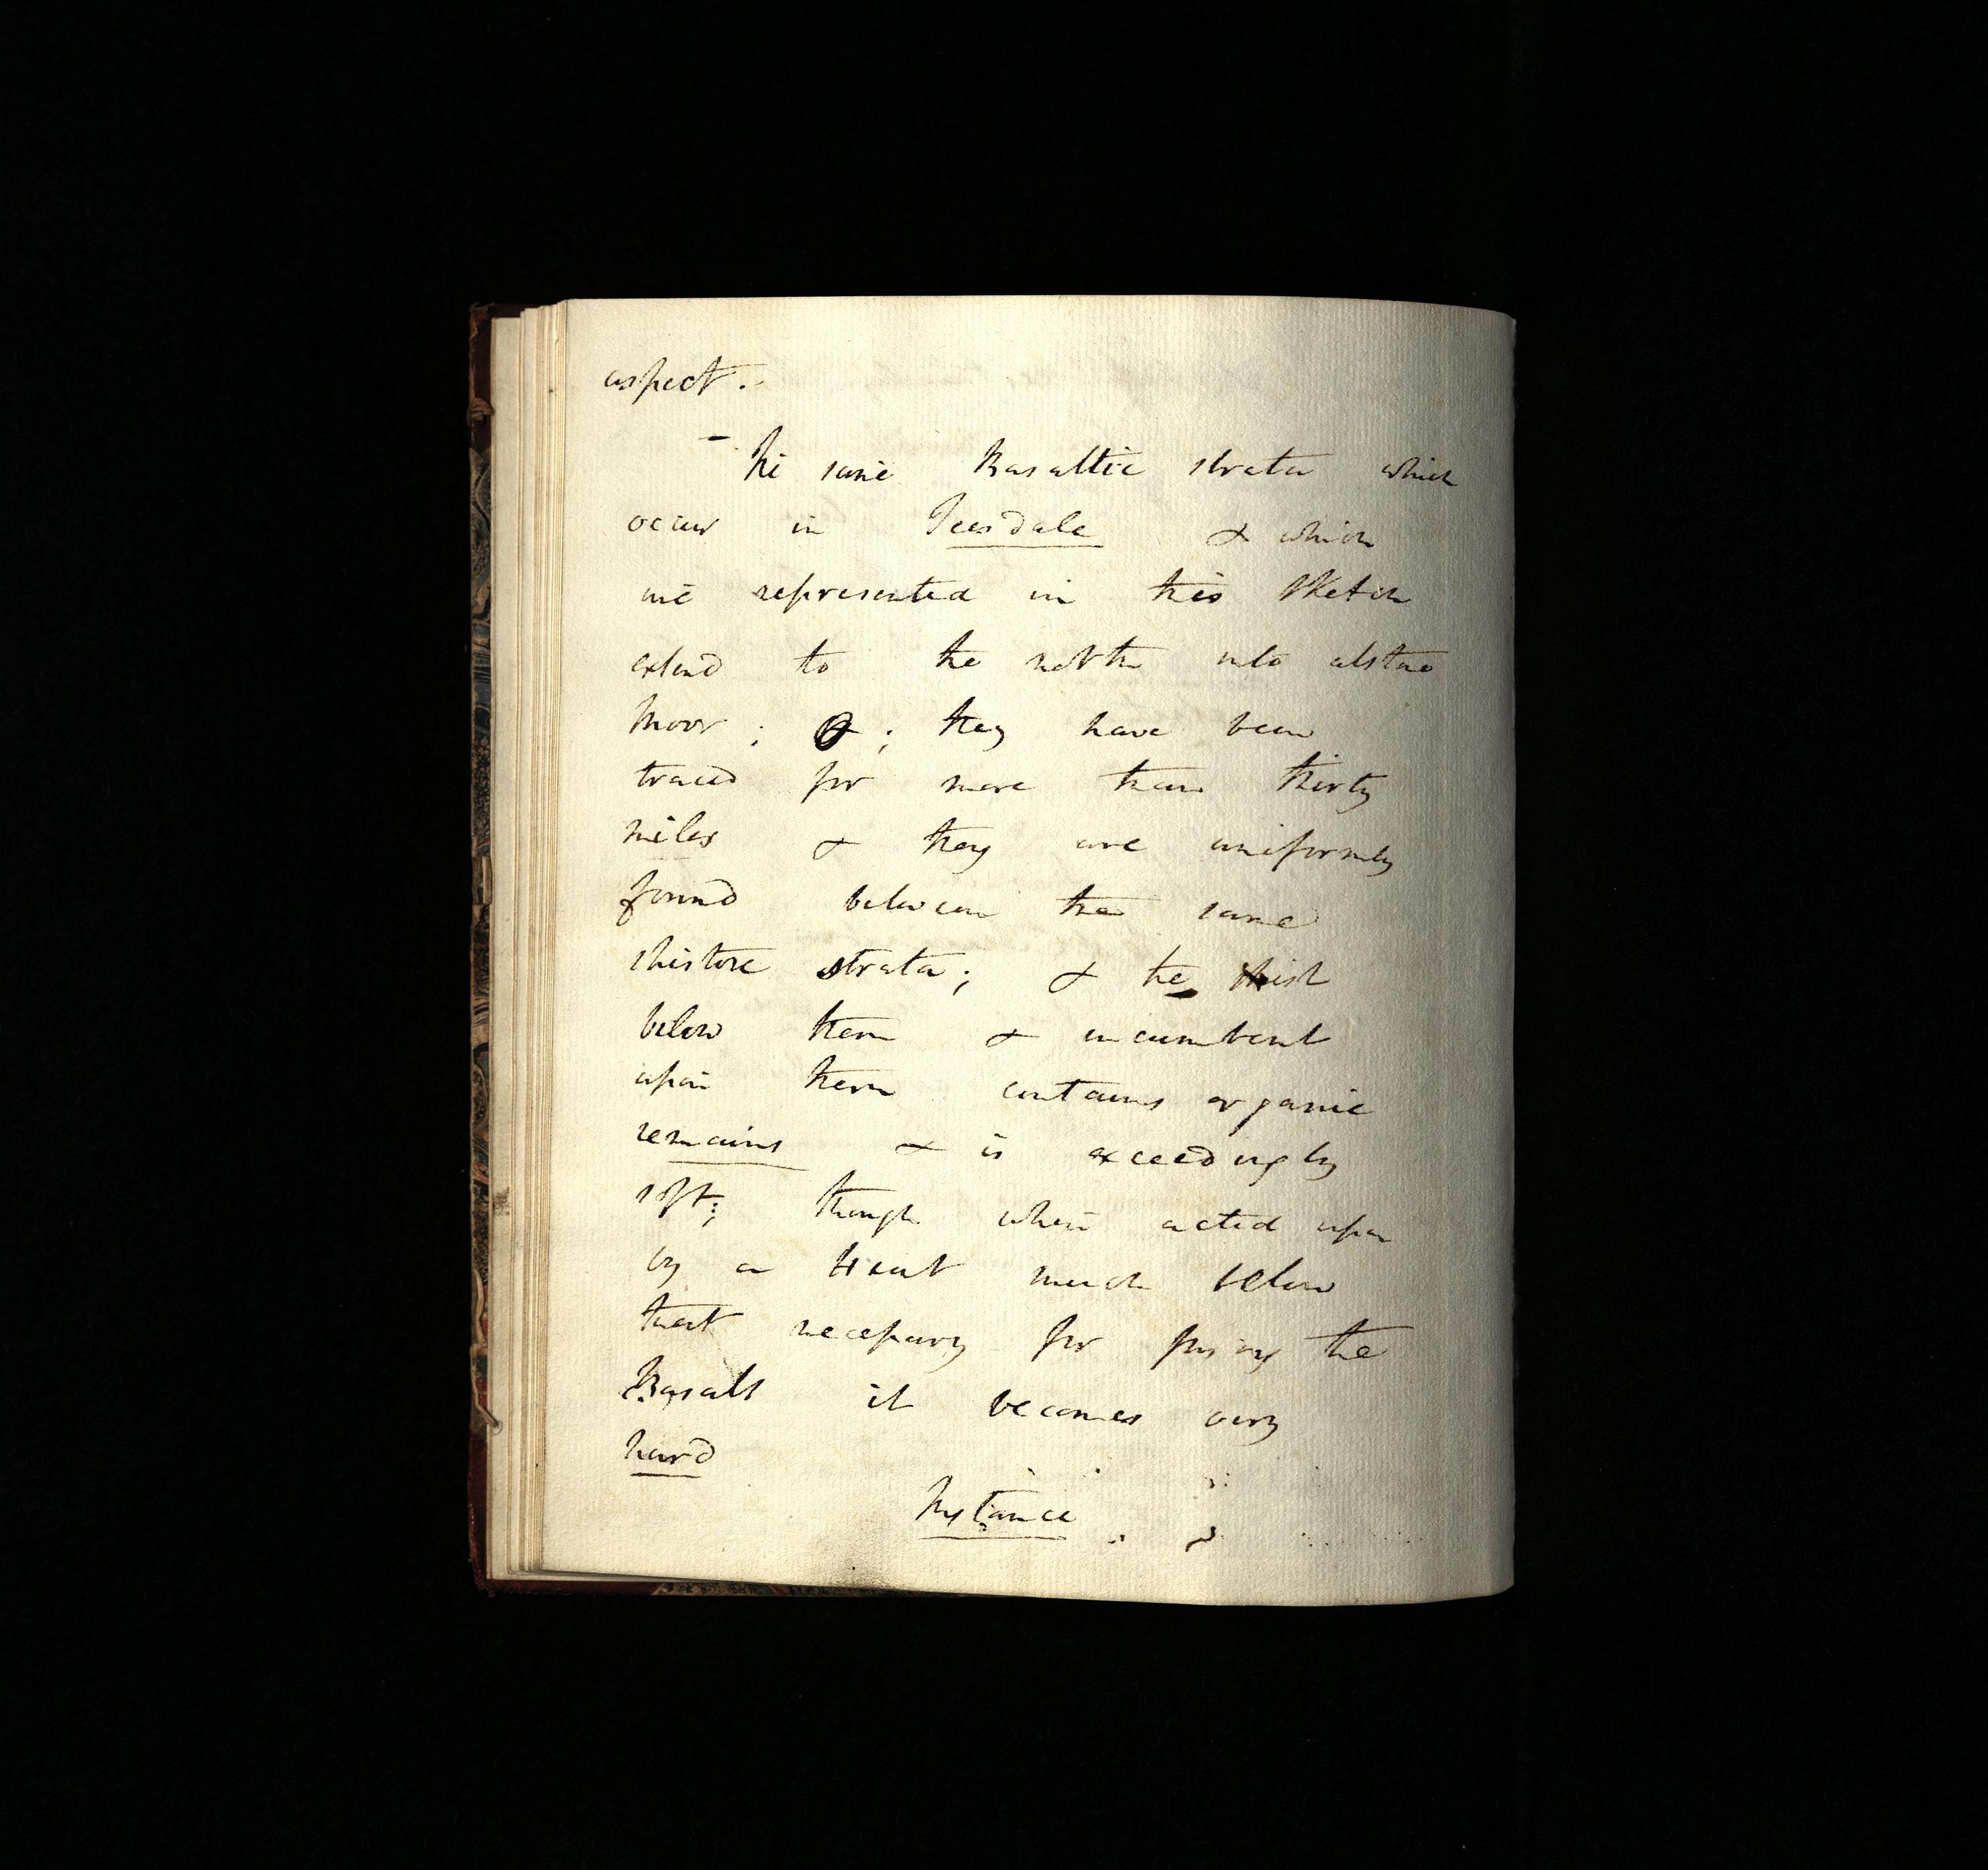 aspect.-
- The same Basaltic strata which
occur in Teesdale & which
are represented in this sketch
extend to the north into alston
Moor; & ; they have been
traced for more than thirty
miles & they are uniformly
found between the same
shistose strata; & the shist
below them & incumbent
upon them contains organic
remains & is exceedingly
soft; though when acted upon
by a Heat much below
that necessary for fusing the
Basalt it becomes very
hard
Instance